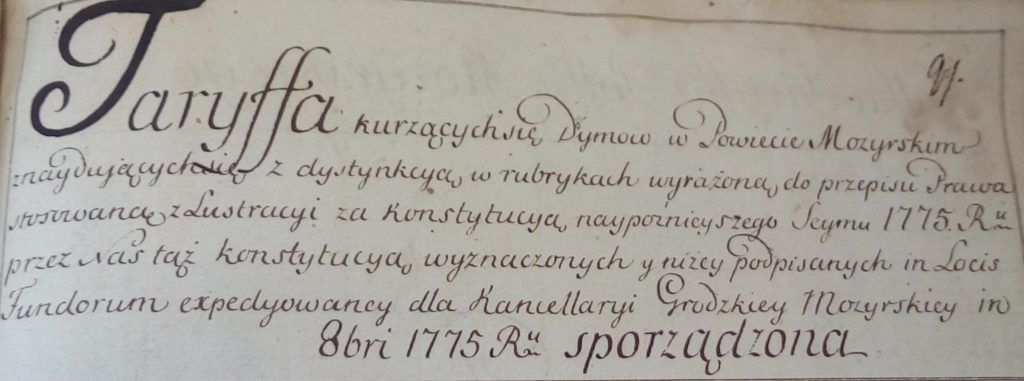 97.
Taryffa kurzących się Dymow w Powiecie Mozyrskim
znaydujących się z dystynkcyą w rubrykach wyrażoną do przepisu Prawa
stosowaną z Lustracyi za Konstytucyą naypoznieyszego Seymu 1775. Ru
przez Nas tąż konstytucyą wyznaczonych y niżey podpisanych in Locis
Fundorum expedyowaney dla Kancellaryi Grodzkiey Mozyrskiey in
8bri 1775 Ru sporządzona